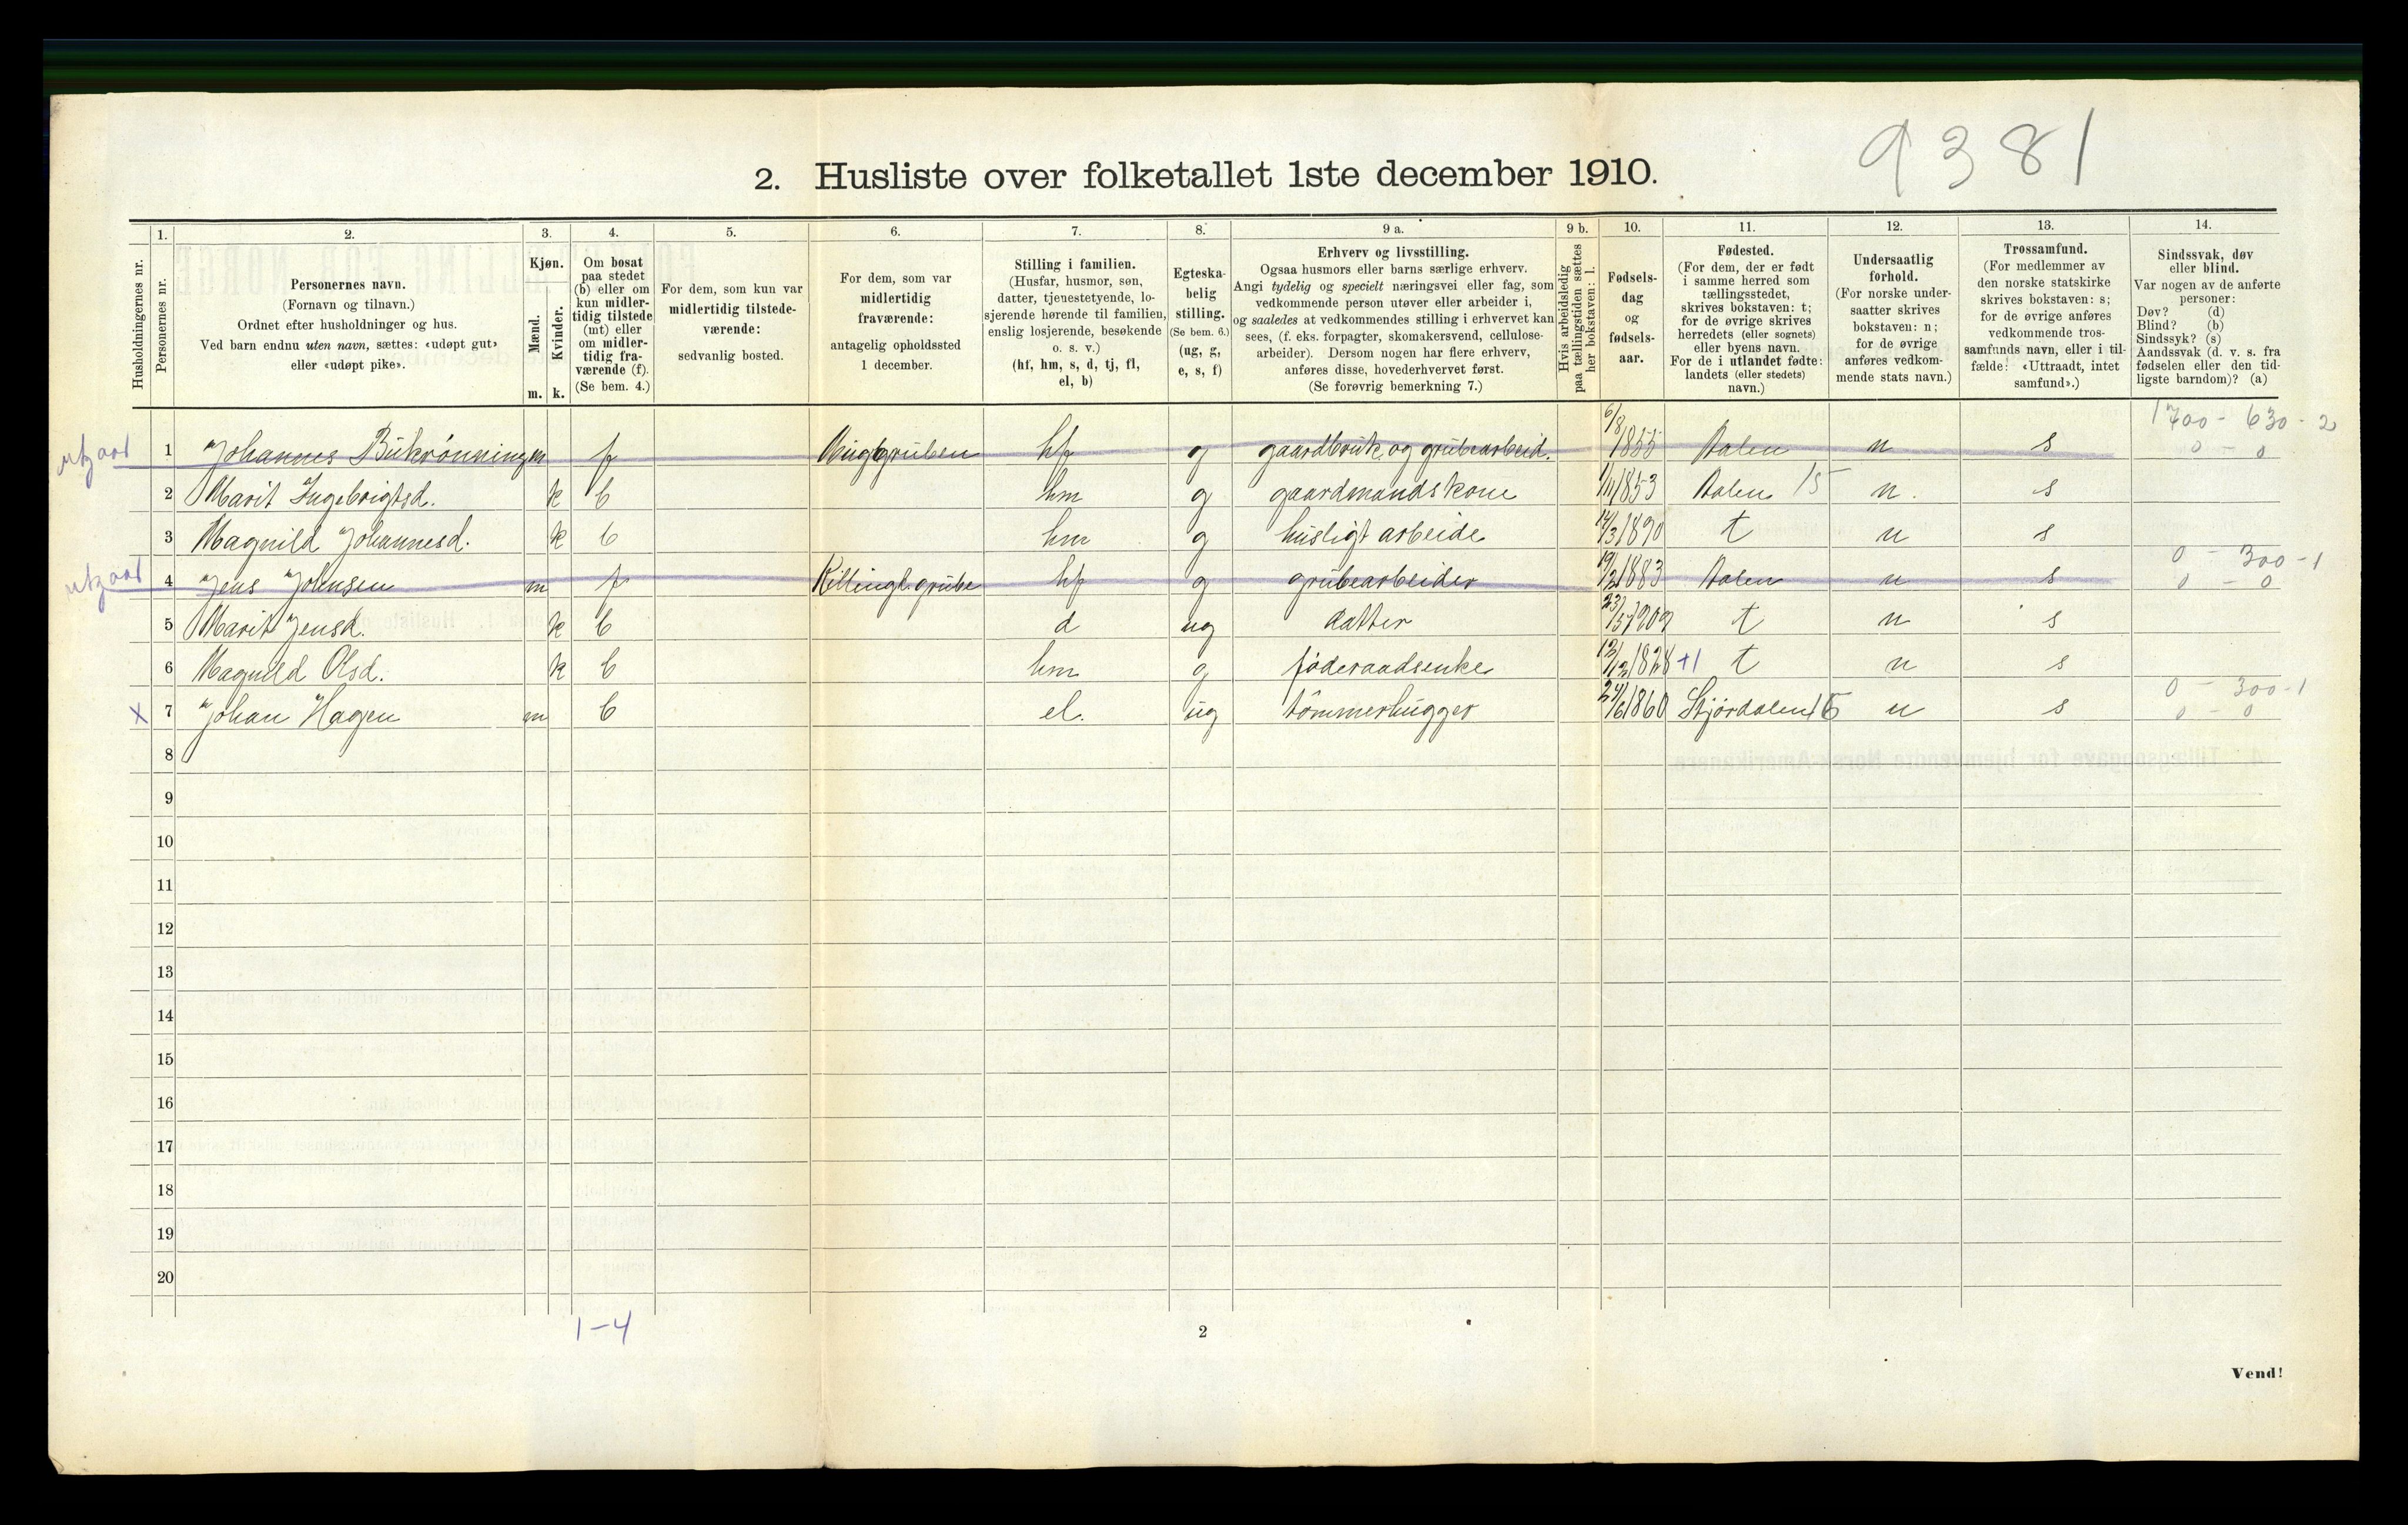 9381
2. Husliste over folketallet 1ste december 1910.
Husholdningernes nr.
1.
Personernes nr.
2.
Personernes navn.
(Fornavn og tilnavn.)
Ordnet efter husholdninger og hus.
Ved barn endnu uten navn, sættes: «udøpt gut»
eller «udøpt pike».
3.
Kjøn.
Mænd.
Kvinder.
m. k.
4.
Om bosat
paa stedet
(b) eller om
kun midler-
tidig tilstede
(mt) eller
om midler-
tidig fra-
værende (f).
(Se bem. 4.)
5.
For dem, som kun var
midlertidig tilstede-
værende:
sedvanlig bosted.
6.
For dem, som var
midlertidig
fraværende:
antagelig opholdssted
1 december.
7.
Stilling i familien.
(Husfar, husmor, søn,
datter, tjenestetyende, lo-
sjerende hørende til familien,
enslig losjerende, besøkende
o. s. v.)
(hf, hm, s, d, tj, fl,
el, b)
8.
Egteska-
belig
stilling.
(Se bem. 6.)
(ug, g,
e, s, f)
9 a.
Erhverv og livsstilling.
Ogsaa husmors eller barns særlige erhverv.
Angi tydelig og specielt næringsvei eller fag, som
vedkommende person utøver eller arbeider i,
og saaledes at vedkommendes stilling i erhvervet kan
sees, (f. eks. forpagter, skomakersvend, cellulose-
arbeider). Dersom nogen har flere erhverv,
anføres disse, hovederhvervet først.
(Se forøvrig bemerkning 7.)
9 b.
Hvis arbeidsledig
paa tællingstiden sættes
her bokstaven: l.
10.
Fødsels-
dag
og
fødsels-
aar.
11.
Fødested.
(For dem, der er født
i samme herred som
tællingsstedet,
skrives bokstaven: t;
for de øvrige skrives
herredets (eller sognets)
eller byens navn.
For de i utlandet fødte:
landets (eller stedets)
navn.)
12.
Undersaatlig
forhold.
(For norske under-
saatter skrives
bokstaven: n;
for de øvrige
anføres vedkom-
mende stats navn.)
13.
Trossamfund.
(For medlemmer av
den norske statskirke
skrives bokstaven: s;
for de øvrige anføres
vedkommende tros-
samfunds navn, eller i til-
fælde: «Uttraadt, intet
samfund».)
14.
Sindssvak, døv
eller blind.
Var nogen av de anførte
personer:
Døv? (d)
Blind? (b)
Sindssyk? (s)
Aandssvak (d. v. s. fra
fødselen eller den tid-
ligste barndom)? (a)
1700 - 630 - 2
1 Johannes Bukrønningen f hf g gaardbruk og grubearbeid. 6/8 1855 Aalen n s 0 - 0
2 Marit Ingebrigtsd. k b hm g gaardmandskone 1/11 1853 Aalen 15 n. s
3 Magnild Johannesd. k b hm g husligt arbeide 14/3 1890 t n s
0 - 300 - 1
4 Jens Johnsen m f Killingd. grube hf g grubearbeider 19/2 1883 Aalen n s 0 - 0
5 Marit Jensd. k b d ug datter 23/5 1909 t n s
6 Magnild Olsd. k b hm g føderaadsenke 12/12 1828 +1 t n s
0 - 300 - 1
X 7 Johan Hagen m b el. ug tømmerhugger 24/6 1860 Stjørdalen 15 n s 0 - 0
8
9
10
11
12
13
14
15
16
17
18
19
20
1-4
2
Vend!